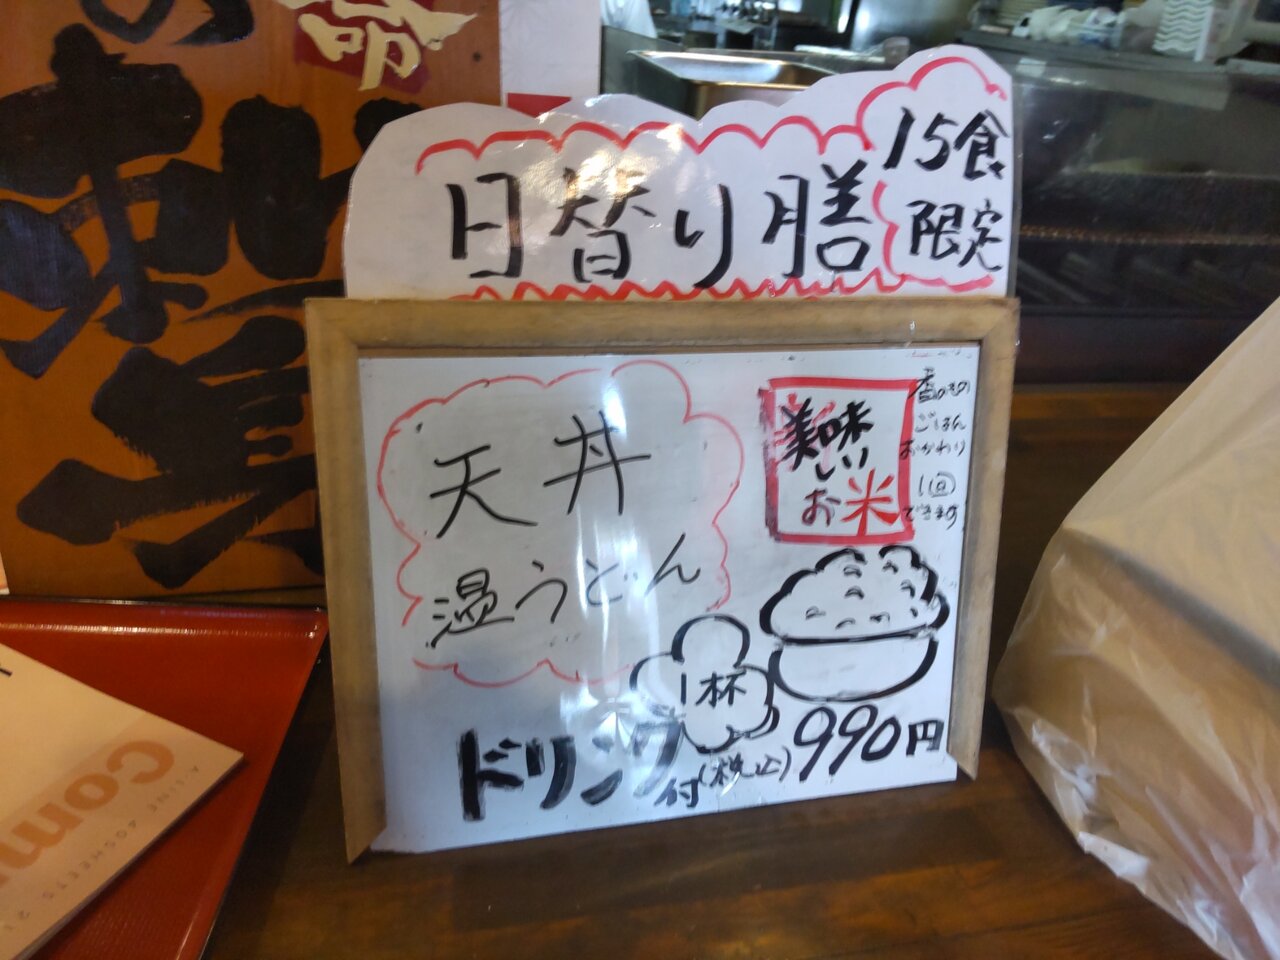 命
味
日替り膳
15食
限定
天丼
温うどん
美味
しい
お米
ごはん
おかわり
1回
できます
1杯
ドリンク付(税込)990円
Com
A-LINE 40SHEETS